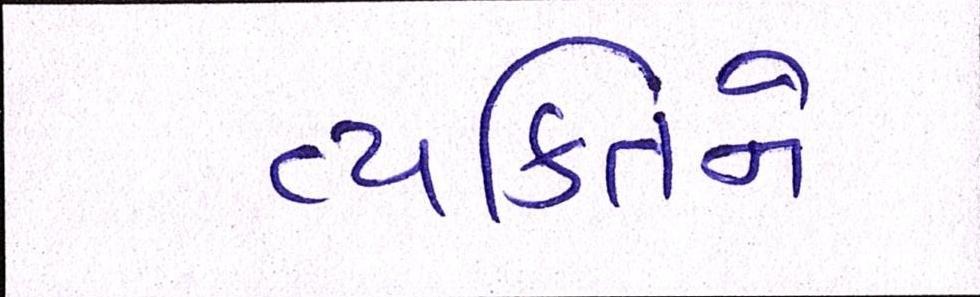 વ્યકિતને